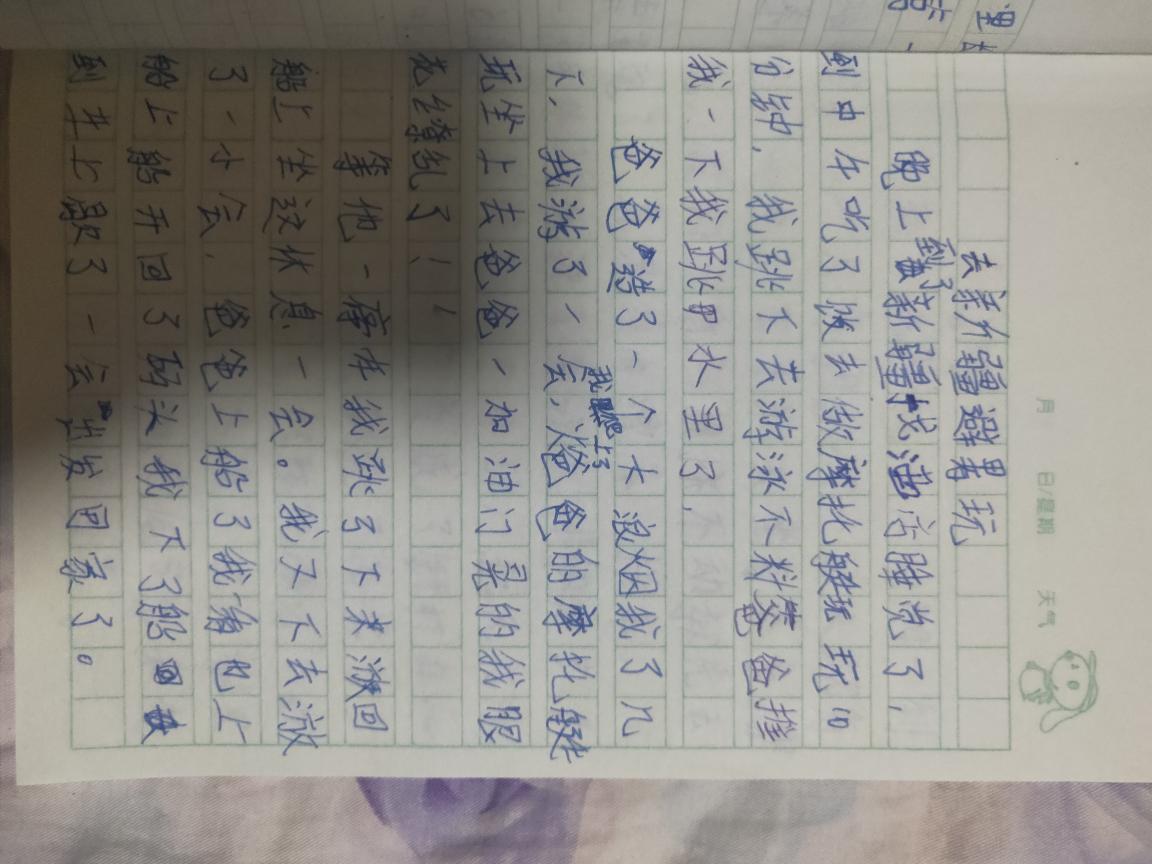 月 日/星期 天气
去新疆避暑玩
晚上到了新疆找酒店睡觉了，
到中午吃了饭去做摩托艇玩玩10
分钟，我跳下去游泳不料爸爸推
我一下我跳里水里了，
爸爸造了一个大浪烟我了几
下，我游了一会，我爬上了爸爸的摩托艇
玩坐上去爸爸一加油门晃的我眼
花缭乱了！
等他一停车我跳了下来游回
船上坐这休息一会。我又下去游
了一小会，爸爸上船了我俩也上
船上船开回了码头我下了船回
到车上躺了一会出发回家了。